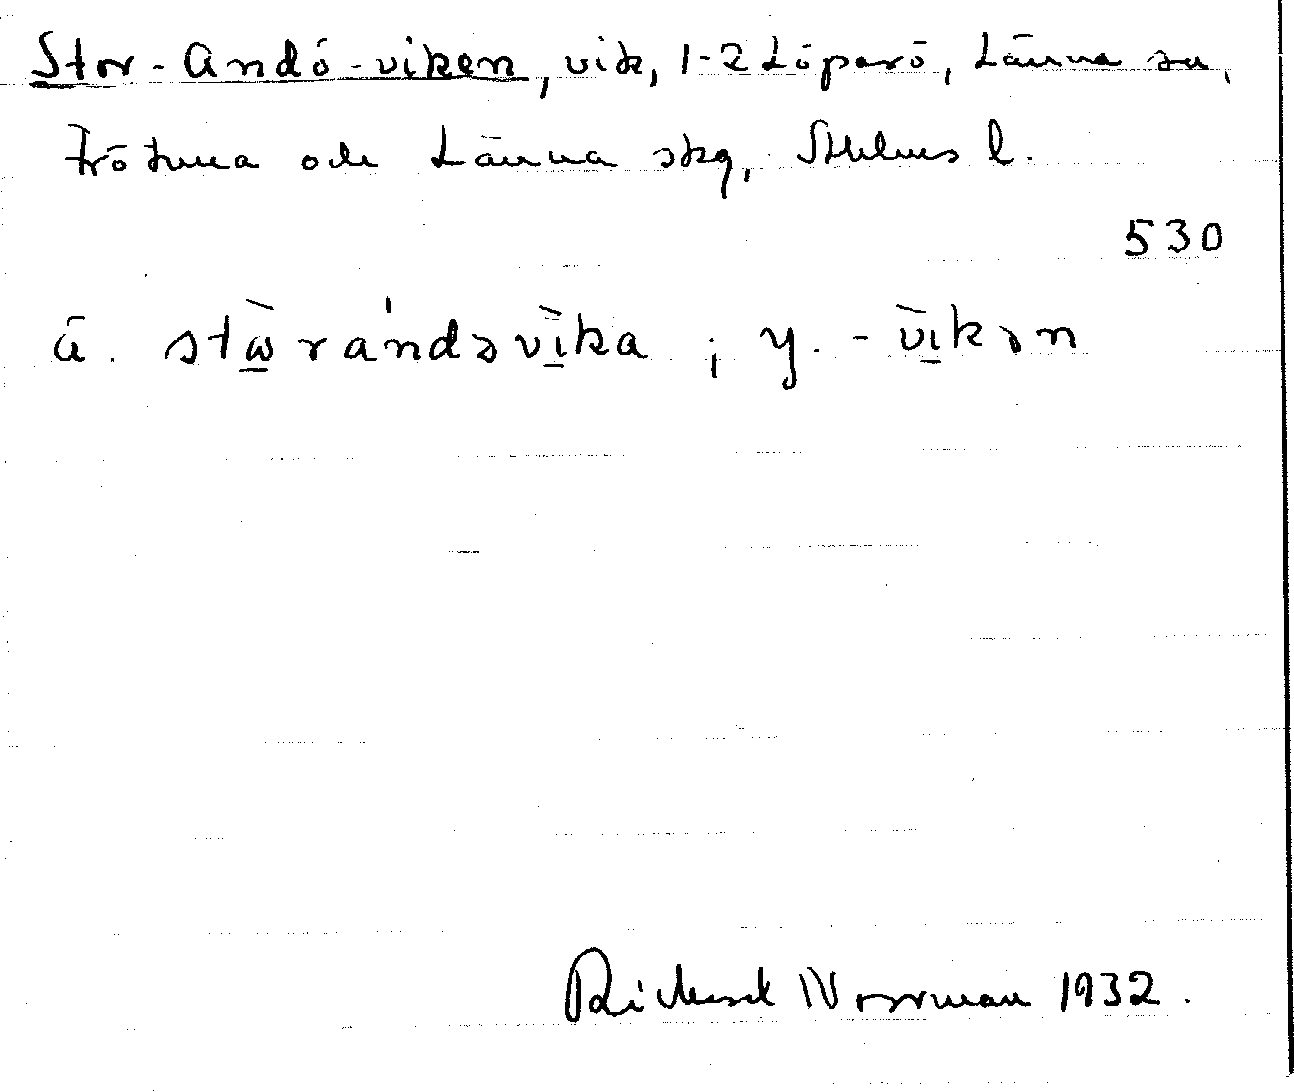 Stor-Andö-viken, vik, 1-2 Löparö, Länna sn,
Frötuna och Länna skg, Sthlms l.
530
ä. stὼ̲rándəvì̲ka ; y. -vì̲kən
Rickard Norrman 1932.